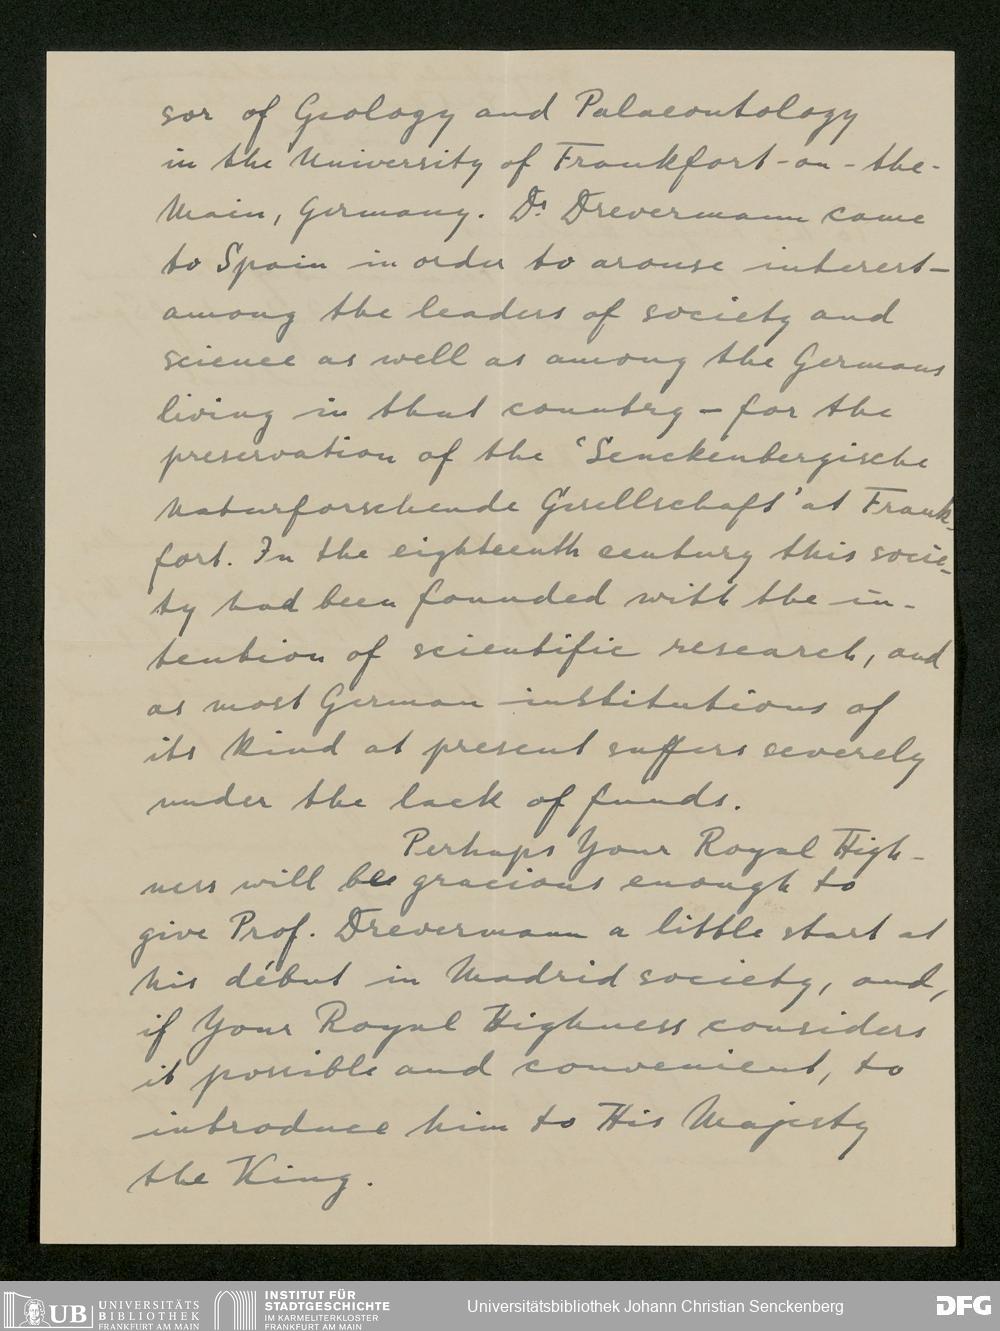 sor of Geology and Palaeontology
in the University of Frankfort-on-the-
Main, Germany. Dr. Drevermann came
to Spain in order to arouse interest –
among the leaders of society and
science as well as among the Germans
living in that country – for the
preservation of the 'Senckenbergische
Naturforschende Gesellschaft' at Frank-
fort. In the eighteenth century this socie-
ty had been founded with the in-
tention of scientific research, and
as most German institutions of
its kind at present suffers severely
under the lack of funds.
Perhaps Your Royal High-
ness will be gracious enough to
give Prof. Drevermann a little start at
his début in Madrid society, and,
if Your Royal Highness considers
it possible and convenient, to
introduce him to His Majesty
the King.
UB UNIVERSITÄTS
BIBLIOTHEK
FRANKFURT AM MAIN
INSTITUT FÜR
STADTGESCHICHTE
IM KARMELITERKLOSTER
FRANKFURT AM MAIN
Universitätsbibliothek Johann Christian Senckenberg
DFG